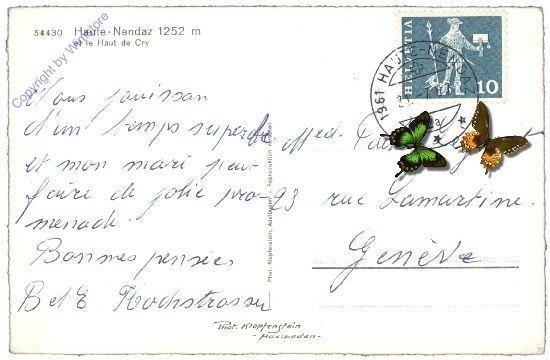 54430 Haute-Nendaz 1252 m
et le Haut de Cry
Copyright by Winstore
Nous jouisson
d'un temps superbe
et mon mari peut
faire de jolie pro-
menade.
Bonnes pensées
B et E Hochstrasser
HELVETIA
10
1961 HAUTE-NENDAZ
Med.
93 rue Lamartine.
Genève
Phot. Klopfenstein, Adelboden - Reproduktion verboten
Phot. Klopfenstein
- Adelboden -